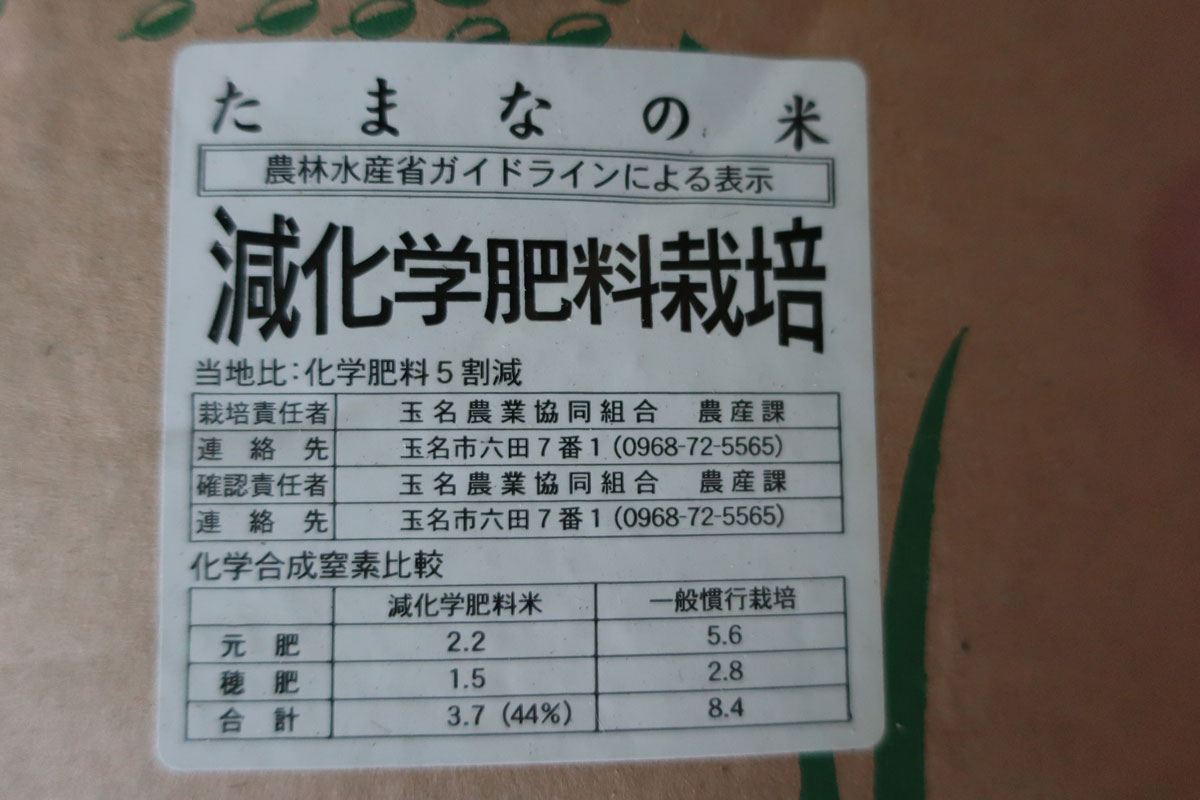 たまなの米
農林水産省ガイドラインによる表示
減化学肥料栽培
当地比：化学肥料5割減
栽培責任者 玉名農業協同組合 農産課
連絡先 玉名市六田7番1（0968-72-5565）
確認責任者 玉名農業協同組合 農産課
連絡先 玉名市六田7番1（0968-72-5565）
化学合成窒素比較
減化学肥料米 一般慣行栽培
元肥 2.2 5.6
穂肥 1.5 2.8
合計 3.7（44%） 8.4